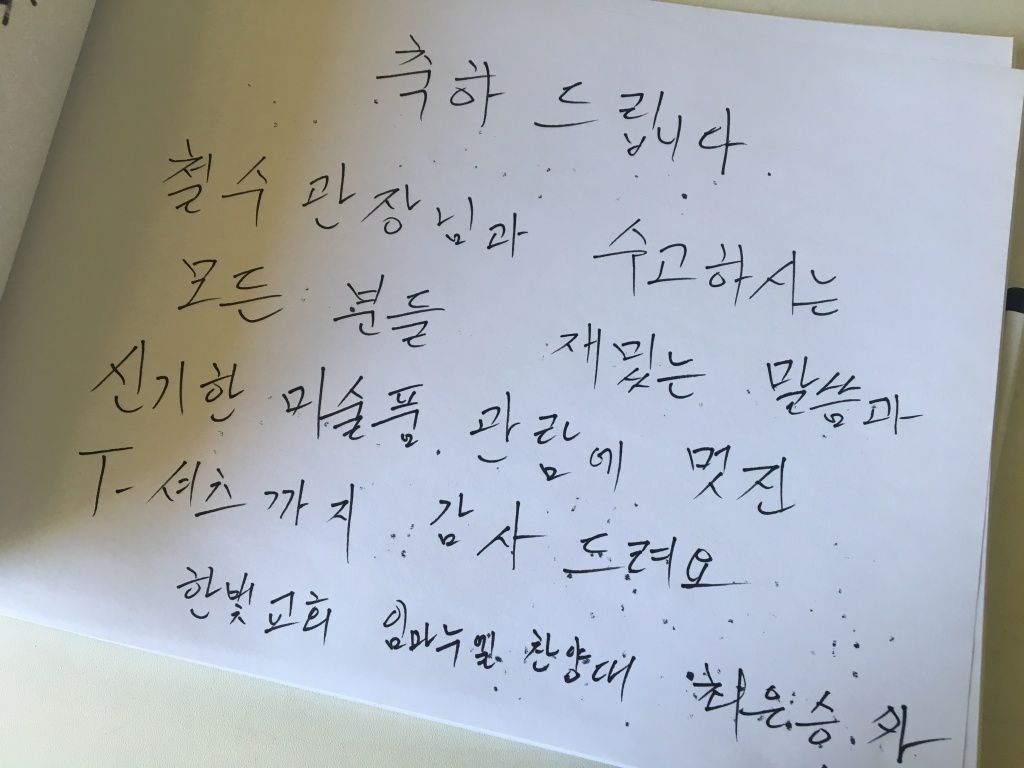 축하 드립니다
철수 관장님과 수고하시는
모든 분들 재밌는 말씀과
신기한 미술품 관람에 멋진
T-셔츠까지 감사 드려요
한빛교회 임마누엘 찬양대 최은승